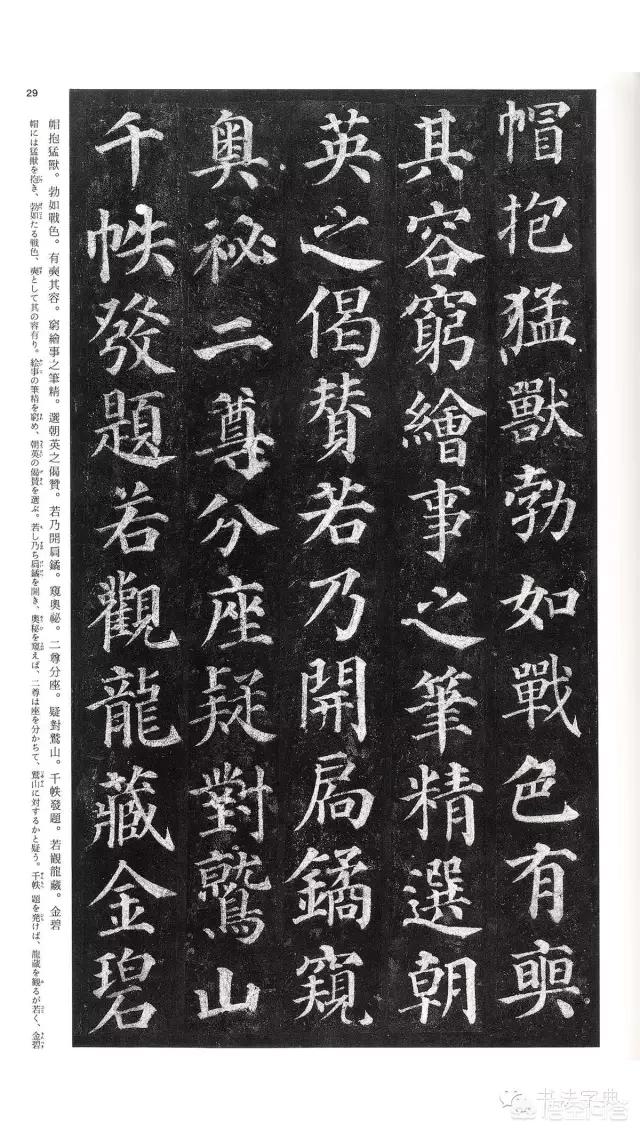 帽抱猛獸勃如戰色有奭
其容窮繪事之筆精選朝
英之偈賛若乃開扃鐍窺
奧祕二尊分座疑對鷲山
千帙發題若觀龍藏金碧
帽抱猛獸。勃如戰色。有奭其容。窮繪事之筆精。選朝英之偈贊。若乃開扃鐍。窺奧祕。二尊分座。疑對鷲山。千帙發題。若觀龍藏。金碧
帽には猛獸を抱き、勃如たる戰色、奭として其の容有り。絵事の筆精を窮め、朝英の偈賛を選ぶ。若し乃ち扃鐍を開き、奧秘を窺えば、二尊は座を分かちて、鷲山に対するかと疑う。千帙 題を発けば、龍蔵を観るが若く、金碧
29
书法字典
悟空问答